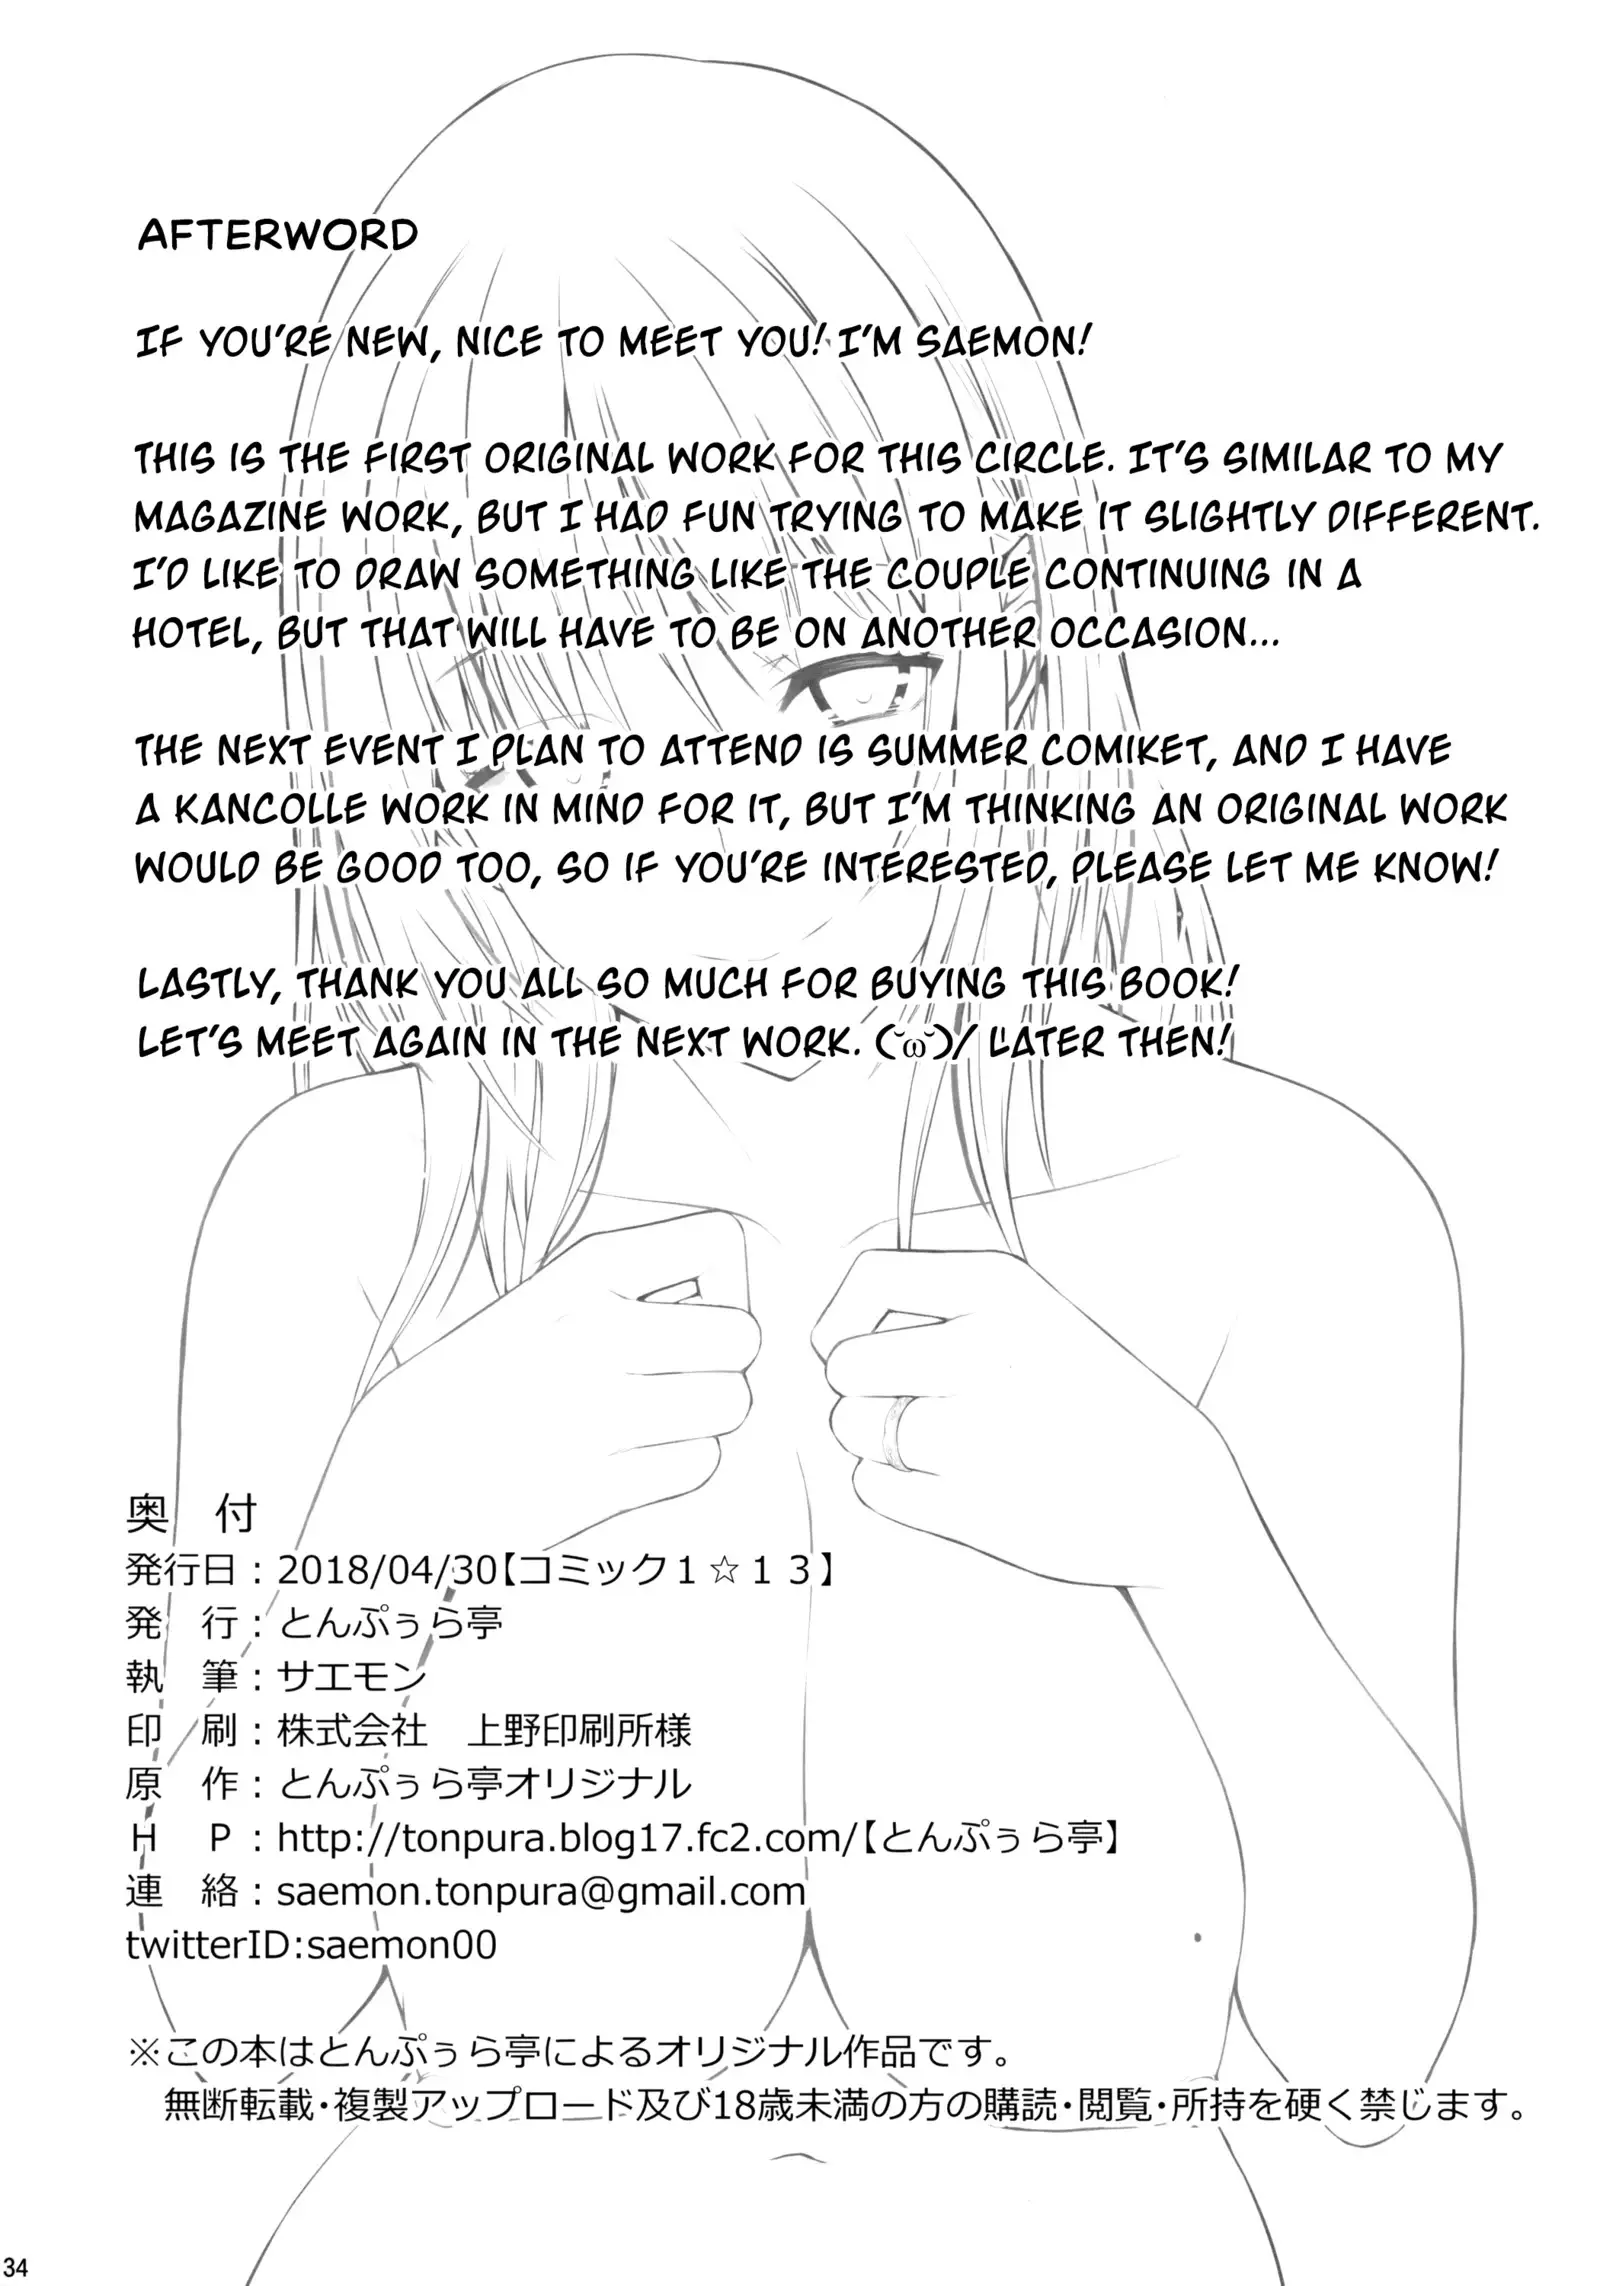 AFTERWORD
IF YOU'RE NEW, NICE TO MEET YOU! I'M SAEMON!
THIS IS THE FIRST ORIGINAL WORK FOR THIS CIRCLE. IT'S SIMILAR TO MY
MAGAZINE WORK, BUT I HAD FUN TRYING TO MAKE IT SLIGHTLY DIFFERENT.
I'D LIKE TO DRAW SOMETHING LIKE THE COUPLE CONTINUING IN A
HOTEL, BUT THAT WILL HAVE TO BE ON ANOTHER OCCASION...
THE NEXT EVENT I PLAN TO ATTEND IS SUMMER COMIKET, AND I HAVE
A KANCOLLE WORK IN MIND FOR IT, BUT I'M THINKING AN ORIGINAL WORK
WOULD BE GOOD TOO, SO IF YOU'RE INTERESTED, PLEASE LET ME KNOW!
LASTLY, THANK YOU ALL SO MUCH FOR BUYING THIS BOOK!
LET'S MEET AGAIN IN THE NEXT WORK. (˘ω˘)/ LATER THEN!
奥　付
発行日：2018/04/30【コミック１☆１３】
発　行：とんぷぅら亭
執　筆：サエモン
印　刷：株式会社　上野印刷所様
原　作：とんぷぅら亭オリジナル
Ｈ　Ｐ：http://tonpura.blog17.fc2.com/【とんぷぅら亭】
連　絡：saemon.tonpura@gmail.com
twitterID:saemon00
※この本はとんぷぅら亭によるオリジナル作品です。
無断転載・複製アップロード及び18歳未満の方の購読・閲覧・所持を硬く禁じます。
34